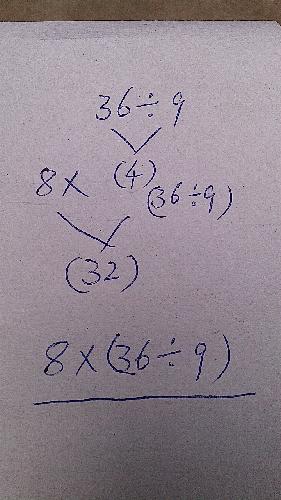 36÷9
8× (4) (36÷9)
(32)
8×(36÷9)